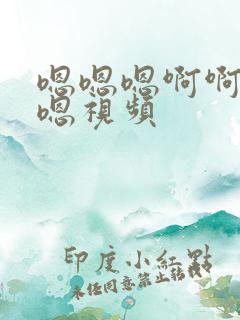 嗯嗯嗯啊啊
嗯視頻
印度小紅點
未任同意禁止轉載